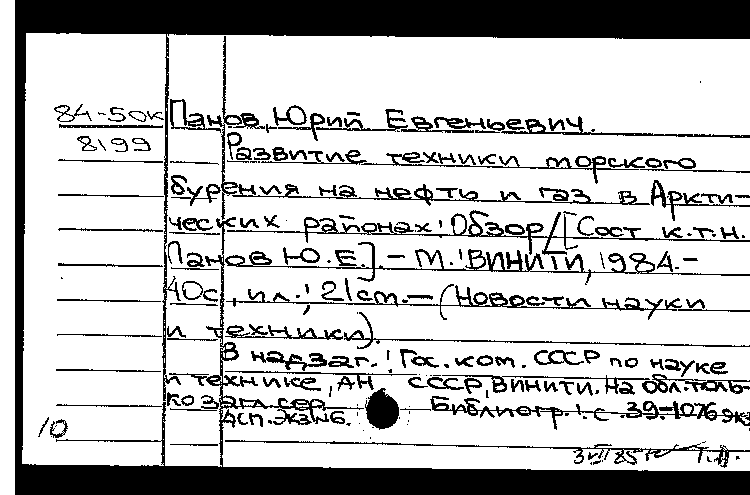 84-50к Панов, Юрий Евгеньевич.
8199 Развитие техники морского
бурения на нефть и газ в Аркти-
ческих районах: Обзор/[Сост к.т.н.
Панов Ю.Е.]. – М.: ВИНИТИ, 1984.–
40с., ил.; 21cm. – (Новости науки
и техники).
В надзаг.: Гос. ком. СССР по науке
и технике, АН СССР, ВИНИТИ. На обл. толь-
ко загл. сер. Библиогр.: с. 39-
1076 экз
10